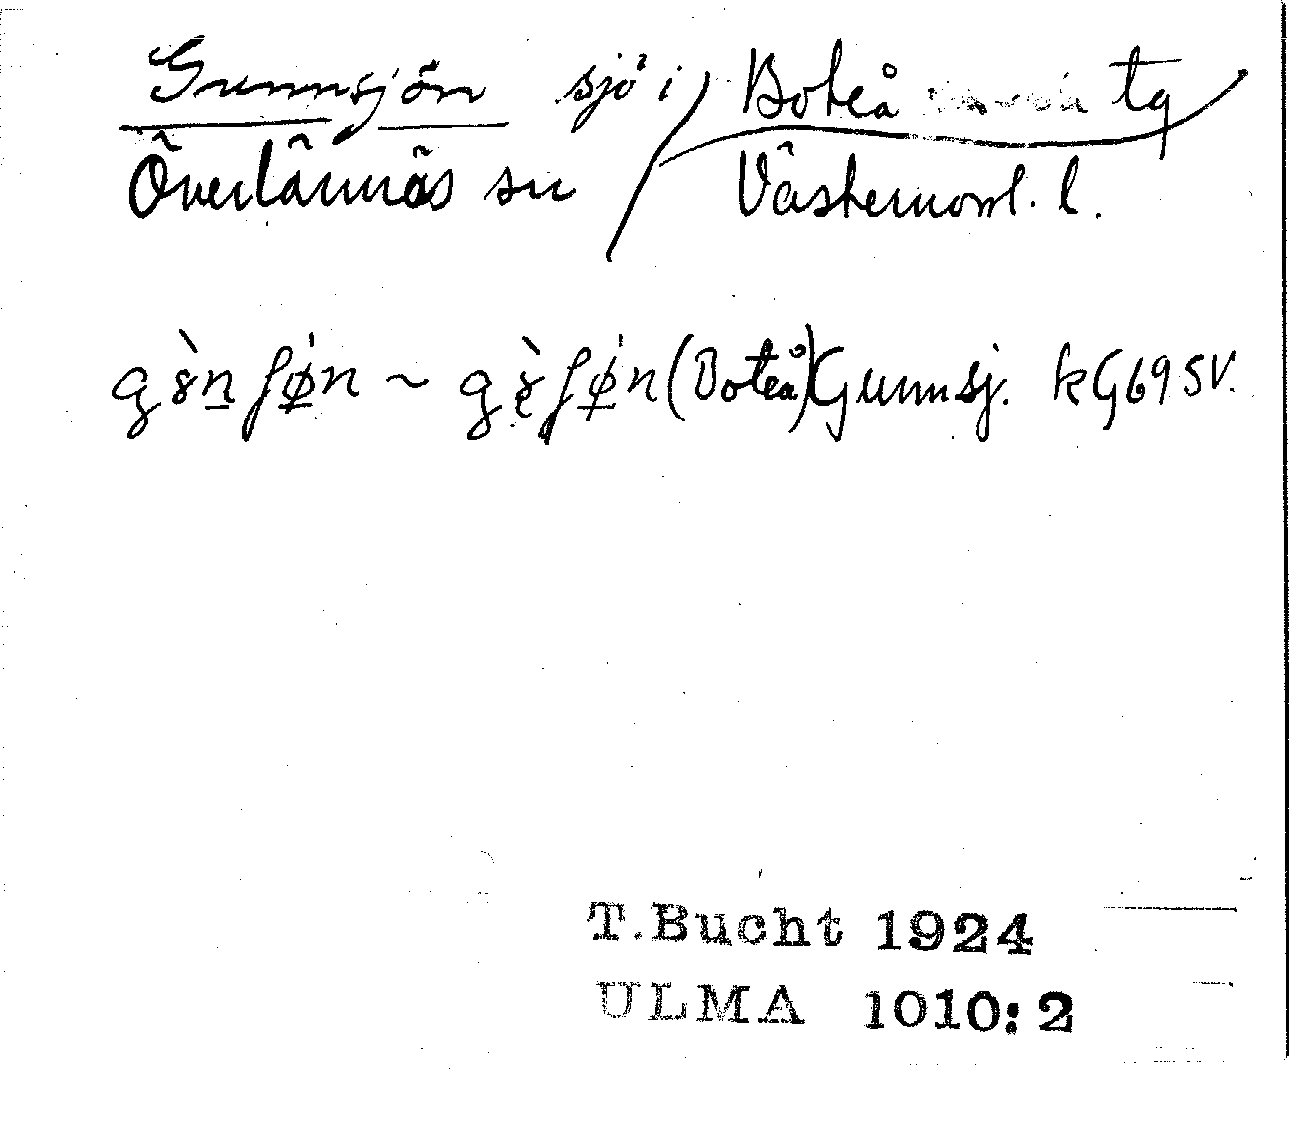 Gunnsjön sjö i Boteå tg
Överlännäs sn Västernorrl. l.
gɞ̀n ʃø̍n ~ gɞ̨̀ʃø̍n (Boteå) Gunnsj. kG69SV.
T.Bucht 1924
ULMA 1010:2